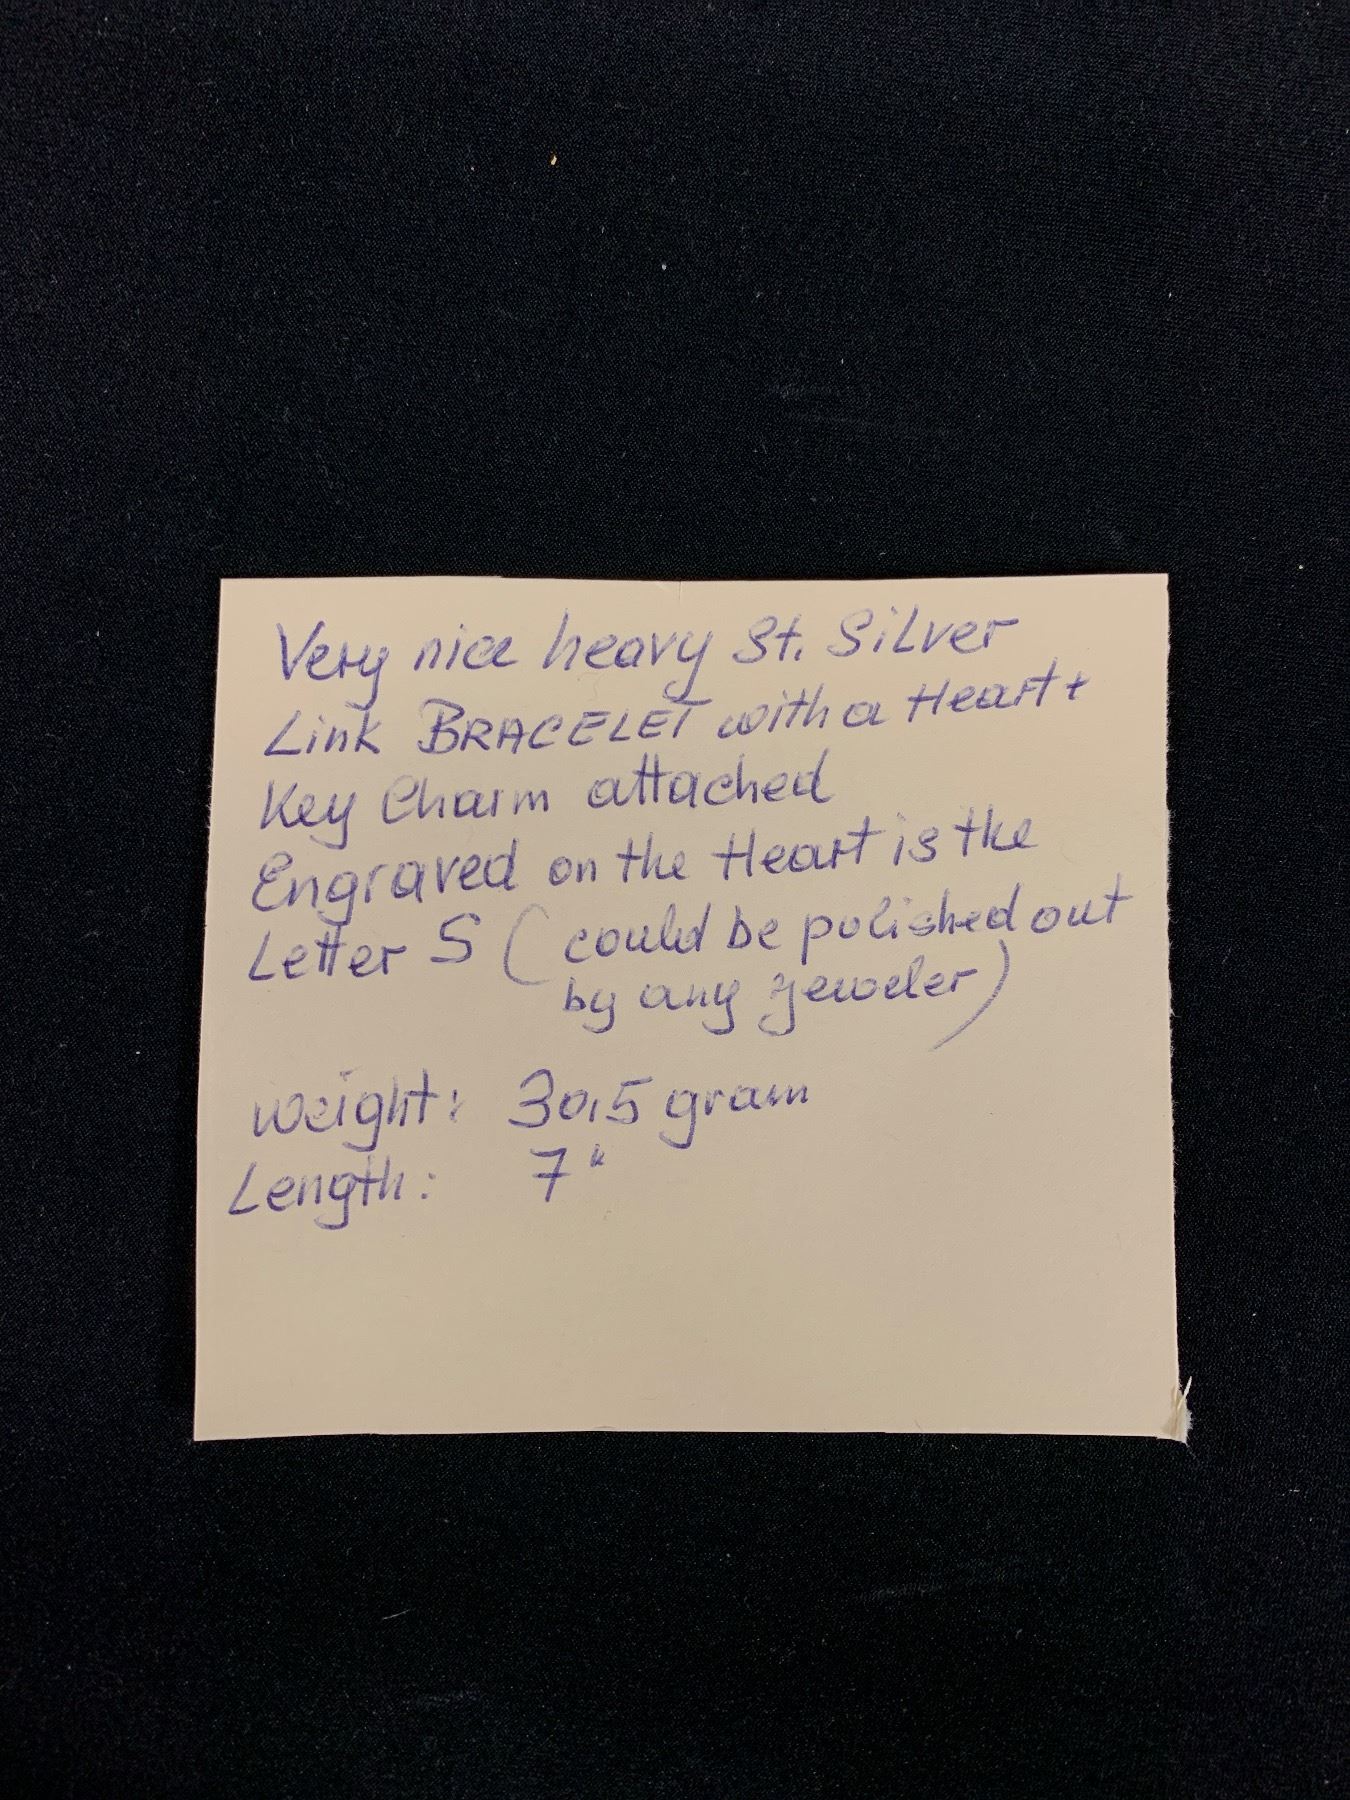 Very nice heavy St. Silver
Link BRACELET with a Heart +
Key Charm attached
Engraved on the Heart is the
Letter S ( could be polished out
by any jeweler)
weight: 30,5 gram
Length: 7"